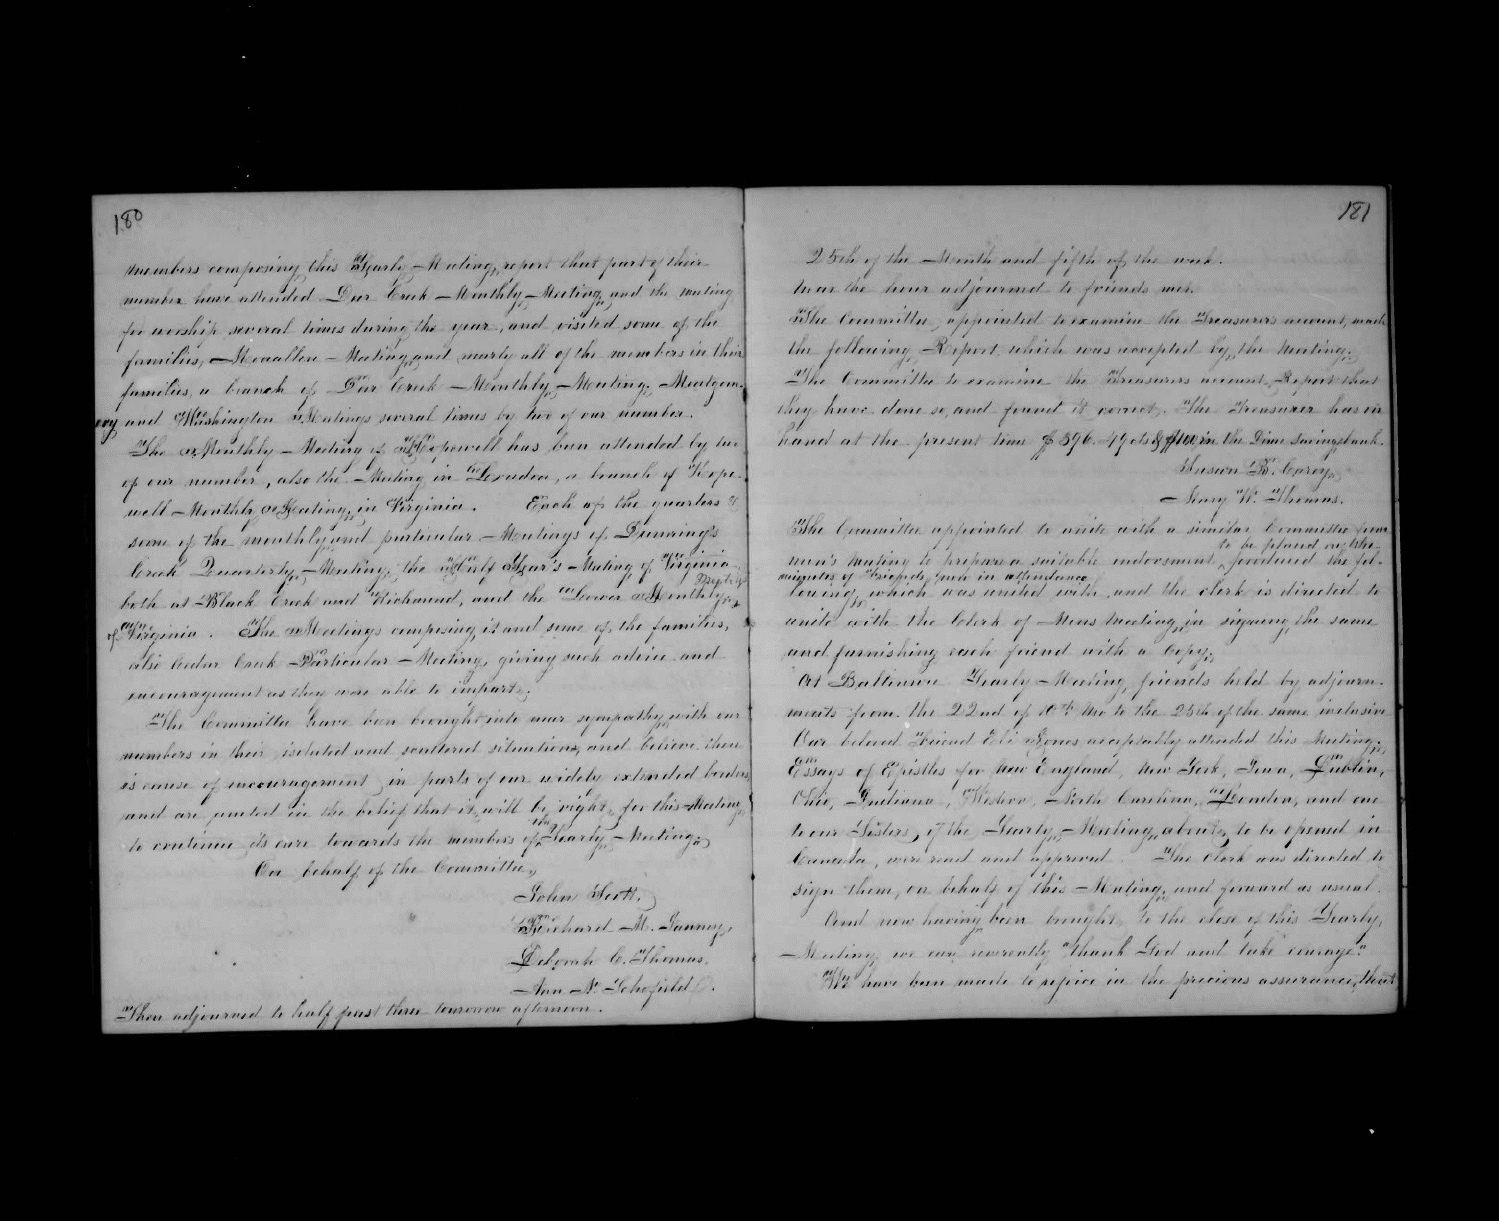 180
members composing this Yearly Meeting, report that part of their
number have attended Deer Creek Monthly Meeting, and the meeting
for worship several times during the year, and visited some of the
families, Menallen Meeting, and nearly all of the members in their
families, a branch of Deer Creek Monthly Meeting. Montgom-
ery and Washington Meetings several times by two of our number.
The Monthly Meeting of Hopewell has been attended by two
of our number, also the Meeting in Loudon, a branch of Hope-
well Monthly Meeting, in Virginia. Each of the quarters &
some of the monthly and particular Meetings of Dunning's
Creek Quarterly Meeting, the Half Year's Meeting of Virginia
both at Black Creek and Richmond, and the Lower Monthly
of Virginia. The Meetings composing it and some of the families,
also Cedar Creek Particular Meeting, giving such advice and
encouragement as they were able to impart.
The Committee have been brought into near sympathy with our
members in their isolated and scattered situations, and believe there
is cause of encouragement, in parts of our widely extended borders,
and are united in the belief that it will be right, for this Meeting
to continue its care towards the members of the Yearly Meeting.
On behalf of the Committee,
John Scott.
Richard M. Janney,
Deborah C. Thomas.
Ann N. Schofield.
Then adjourned to half past three tomorrow afternoon.
181
25th of the Month and fifth of the week.
Near the hour adjourned to friends met.
The Committee, appointed to examine the Treasurers account, made
the following Report, which was accepted by the Meeting.
The Committee to examine the Treasurers account, Report that
they have done so, and found it correct. The Treasurer has in
hand at the present time $396.49 cts & in the Dime Savings bank.
Susan B. Carey,
Mary W. Thomas.
The Committee appointed to unite with a similar Committee from
to be placed on the
men's Meeting to prepare a suitable endorsement, produced the fol-
minutes of Friends now in attendance
lowing, which was united with, and the clerk is directed to
unite with the Clerk of Mens Meeting, in signing the same
and furnishing each friend with a Copy.
At Baltimore Yearly Meeting, friends held by adjourn-
ments from the 22nd of 10th Mo to the 25th of the same inclusive
Our beloved Friend Eli Jones acceptably attended this Meeting.
Essays of Epistles for New England, New York, Iowa, Dublin,
Ohio, Indiana, Western, North Carolina, London, and one
to our Sisters, of the Yearly Meeting, about to be opened in
Canada, were read and approved. The clerk was directed to
sign them, on behalf of this Meeting, and forward as usual.
And now having been brought, to the close of this Yearly,
Meeting, we can reverently "thank God and take courage."
We have been made to rejoice in the precious assurance, that